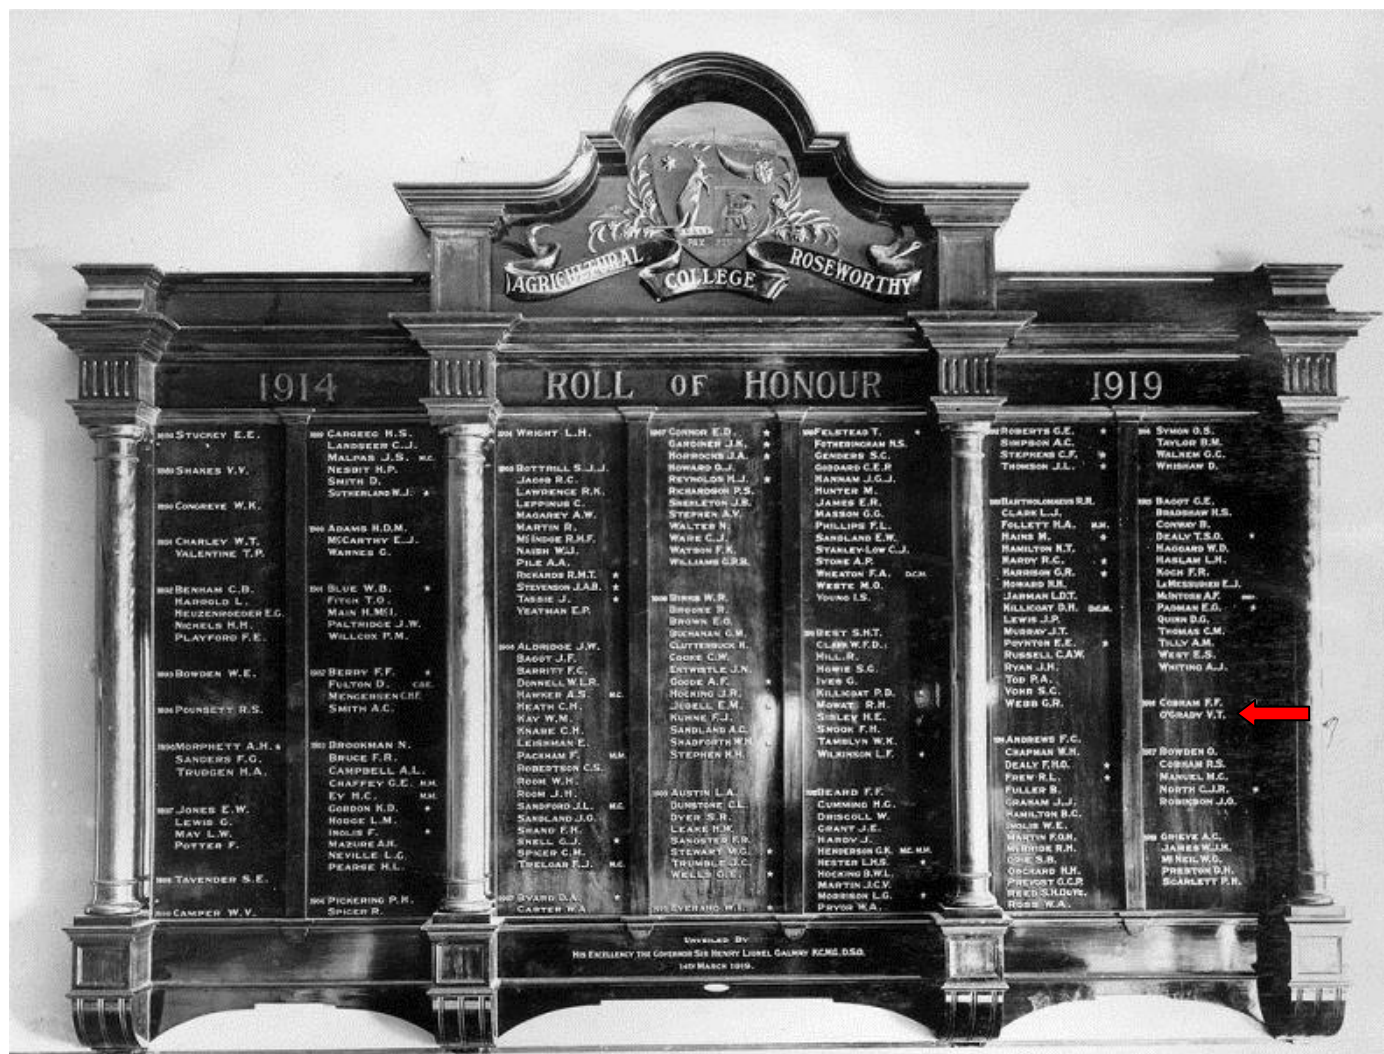 AGRICULTURAL COLLEGE ROSEWORTHY
PAX
1914 ROLL OF HONOUR 1919
STUCKEY E.E.
SHAKES V.V.
CONGREVE W.K.
CHARLEY W.T.
VALENTINE T.P.
BENHAM C.B.
HARROLD L.
HEUZENROEDER E.G.
NICKELS H.H.
PLAYFORD F.E.
BOWDEN W.E.
POUNSETT R.S.
MORPHETT A.H. *
SANDERS F.G.
TRUDGEN H.A.
JONES E.W.
LEWIS G.
MAY L.W.
POTTER F.
TAVENDER S.E.
CAMPER W.V.
CARGEEG H.S.
LANDSEER C.J.
MALPAS J.S. M.C.
NESBIT H.P.
SMITH D.
SUTHERLAND W.J. *
1900 ADAMS H.D.M.
McCARTHY E.J.
WARNES G.
1901 BLUE W.B. *
FITCH T.O.
MAIN H.McI.
PALTRIDGE J.W.
WILLCOX P.M.
1902 BERRY F.F. *
FULTON D. C.B.E.
MENGERSEN C.H.F.
SMITH A.C.
1903 BROOKMAN N.
BRUCE F.R.
CAMPBELL A.L.
CHAFFEY G.E. M.M.
EY H.C. M.M.
GORDON K.D. *
HODGE L.M.
INGLIS F. *
MAZURE A.H.
NEVILLE L.G.
PEARSE H.L.
1904 PICKERING P.H.
SPICER R.
1904 WRIGHT L.H.
1905 BOTTRILL S.J.J.
JACOB R.C.
LAWRENCE R.K.
LEPPINUS C.
MAGAREY A.W.
MARTIN R.
McINDOE R.H.F.
NAISH W.J.
PILE A.A.
RICHARDS R.M.T. *
STEVENSON J.A.B. *
TASSIE J. *
YEATMAN E.P.
1906 ALDRIDGE J.W.
BAGOT J.F.
BARRITT F.C.
DONNELL W.L.R.
HAWKER A.S. M.C.
HEATH C.H.
KAY W.M.
KNABE C.H.
LEISHMAN E.
PACKHAM F. M.M.
ROBERTSON C.S.
ROOM W.H.
ROOM J.H.
SANDFORD J.L. M.C.
SANDLAND J.G.
SHAND F.H.
SNELL G.J. *
SPICER C.M.
TRELOAR F.J. M.C.
1907 BYARD D.A. *
CARTER W.A.
1907 CONNOR E.D. *
GARDINER J.K. *
HORROCKS J.A. *
HOWARD G.J.
REYNOLDS H.J. *
RICHARDSON P.S.
SHEKLETON J.B.
STEPHEN A.V.
WALTER N.
WARE C.J.
WATSON F.K.
WILLIAMS G.P.R.
1908 BIRKS W.R.
BROOKE B.
BROWN E.G.
BUCHANAN G.M.
CLUTTERBUCK H.
COOKE C.W.
ENTWISTLE J.N.
GOODE A.F. *
HOCKING J.R.
JEDELL E.M.
KUHNE F.J.
SANDLAND A.C.
SHADFORTH W.H.
STEPHEN K.H.
1909 AUSTIN L.A.
DUNSTONE C.L.
DYER S.R.
LEAKE H.W.
SANGSTER F.R.
STEWART W.G. *
TRUMBLE J.C.
WELLS G.E. *
EVERARD W.I. *
FELSTEAD T. *
FOTHERINGHAM N.S.
GENDERS S.C.
GODDARD C.E.P.
HANNAM J.G.J.
HUNTER M.
JAMES E.R.
MASSON G.G.
PHILLIPS F.L.
SANDLAND E.W.
STANLEY-LOW C.J.
STONE A.P.
WHEATON F.A. D.C.M.
WESTE M.O.
YOUNG I.S.
BEST S.H.T.
CLARK W.F.D.
HILL R.
HOWIE S.G.
IVES G.
KILLICOAT P.D.
MOWAT R.H.
SIBLEY H.E.
SNOOK F.H.
TAMBLYN W.K.
WILKINSON L.F. *
BEARD F.F.
CUMMING H.G.
DRISCOLL W.
GRANT J.E.
HARDY J.
HENDERSON G.K. M.C. M.M.
HESTER L.H.S. *
HOCKING B.W.L.
MARTIN J.C.V.
MORRISON L.G. *
PRYOR W.A.
ROBERTS G.E. *
SIMPSON A.C.
STEPHENS C.F. *
THOMSON J.L. *
BARTHOLOMAEUS R.R.
CLARK L.J.
FOLLETT H.A. M.M.
HAINS M. *
HAMILTON N.T.
HARDY R.C. *
HARRISON G.R. *
HOWARD N.H.
JARMAN L.D.T.
KILLICOAT D.H. D.C.M.
LEWIS J.P.
MURRAY J.T.
POYNTON E.E. *
RUSSELL C.A.W.
RYAN J.H.
TOD P.A.
VOHR S.C.
WEBB G.R.
1914 ANDREWS F.C.
CHAPMAN W.H.
DEALY F.H.O. *
FREW R.L. *
FULLER B.
GRAHAM J.J.
HAMILTON B.C.
INGLIS W.E.
MARTIN F.O.H.
McBRIDE R.H.
ORCHARD H.H.
PREVOST G.C.P.
ROSS W.A.
1914 SYMON O.S.
TAYLOR B.M.
WALKEM G.C.
WHISHAW D.
1915 BAGOT G.E.
BRADSHAW H.S.
CONWAY B.
DEALY T.S.O. *
HAGGARD W.D.
HASLAM L.H.
KOCH F.R.
LeMESSURIER E.J.
McINTOSH A.F.
PADMAN E.G. *
QUINN D.G.
THOMAS C.M.
TILLY A.M.
WEST E.S.
WHITING A.J.
1916 COBHAM F.F.
O'GRADY V.T.
1917 BOWDEN O.
COBHAM R.S.
MANUEL M.C.
NORTH C.J.R. *
ROBINSON J.O.
1918 GRIEVE A.C.
JAMES W.J.H.
McNEIL W.G.
PRESTON D.H.
SCARLETT P.H.
UNVEILED BY
HIS EXCELLENCY THE GOVERNOR SIR HENRY LIONEL GALWAY K.C.M.G. D.S.O.
14TH MARCH 1919.